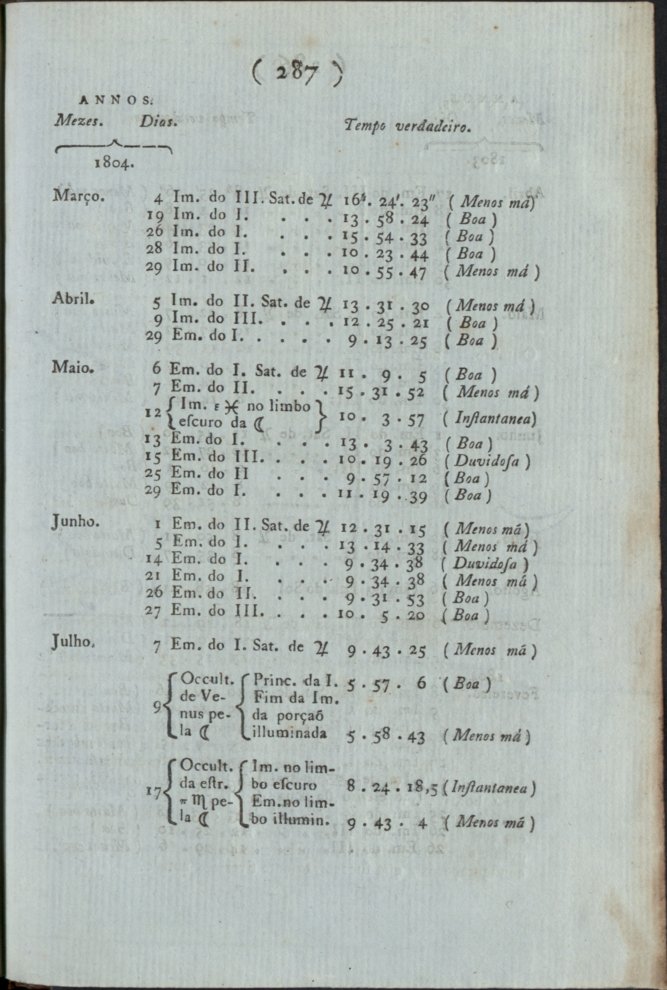 ( 287 )
ANNOS.
Mezes. Dias. Tempo verdadeiro.
1804.
Março. 4 Im. do III. Sat. de ♃ 16ʰ. 24′. 23″ ( Menos má)
19 Im. do I. . . . 13 . 58 . 24 ( Boa )
26 Im. do I. . . . 15 . 54 . 33 ( Boa )
28 Im. do I. . . . 10 . 23 . 44 ( Boa )
29 Im. do II. . . . 10 . 55 . 47 ( Menos má )
Abril. 5 Im. do II. Sat. de ♃ 13 . 31 . 30 ( Menos má )
9 Im. do III. . . . 12 . 25 . 21 ( Boa )
29 Em. do I. . . . . 9 . 13 . 25 ( Boa )
Maio. 6 Em. do I. Sat. de ♃ 11 . 9 . 5 ( Boa )
7 Em. do II. . . . 15 . 31 . 52 ( Menos má )
12 { Im. ε ♓ no limbo
eſcuro da ☾ } 10 . 3 . 57 ( Inſtantanea)
13 Em. do I. . . . 13 . 3 . 43 ( Boa )
15 Em. do III. . . . 10 . 19 . 26 ( Duvidoſa )
25 Em. do II . . . 9 . 57 . 12 ( Boa )
29 Em. do I. . . . 11 . 19 . 39 ( Boa )
Junho. 1 Em. do II. Sat. de ♃ 12 . 31 . 15 ( Menos má )
5 Em. do I. . . . 13 . 14 . 33 ( Menos má )
14 Em. do I. . . . 9 . 34 . 38 ( Duvidoſa )
21 Em. do I. . . . 9 . 34 . 38 ( Menos má )
26 Em. do II. . . . 9 . 31 . 53 ( Boa )
27 Em. do III. . . . 10 . 5 . 20 ( Boa )
Julho. 7 Em. do I. Sat. de ♃ 9 . 43 . 25 ( Menos má )
9 { Occult. { Princ. da I. 5 . 57 . 6 ( Boa )
de Ve- Fim da Im.
nus pe- da porçaõ
la ☾ illuminada 5 . 58 . 43 ( Menos má )
17 { Occult. { Im. no lim-
da eſtr. bo eſcuro 8 . 24 . 18,5 ( Inſtantanea )
π ♏ pe- Em. no lim-
la ☾ bo illumin. 9 . 43 . 4 ( Menos má )